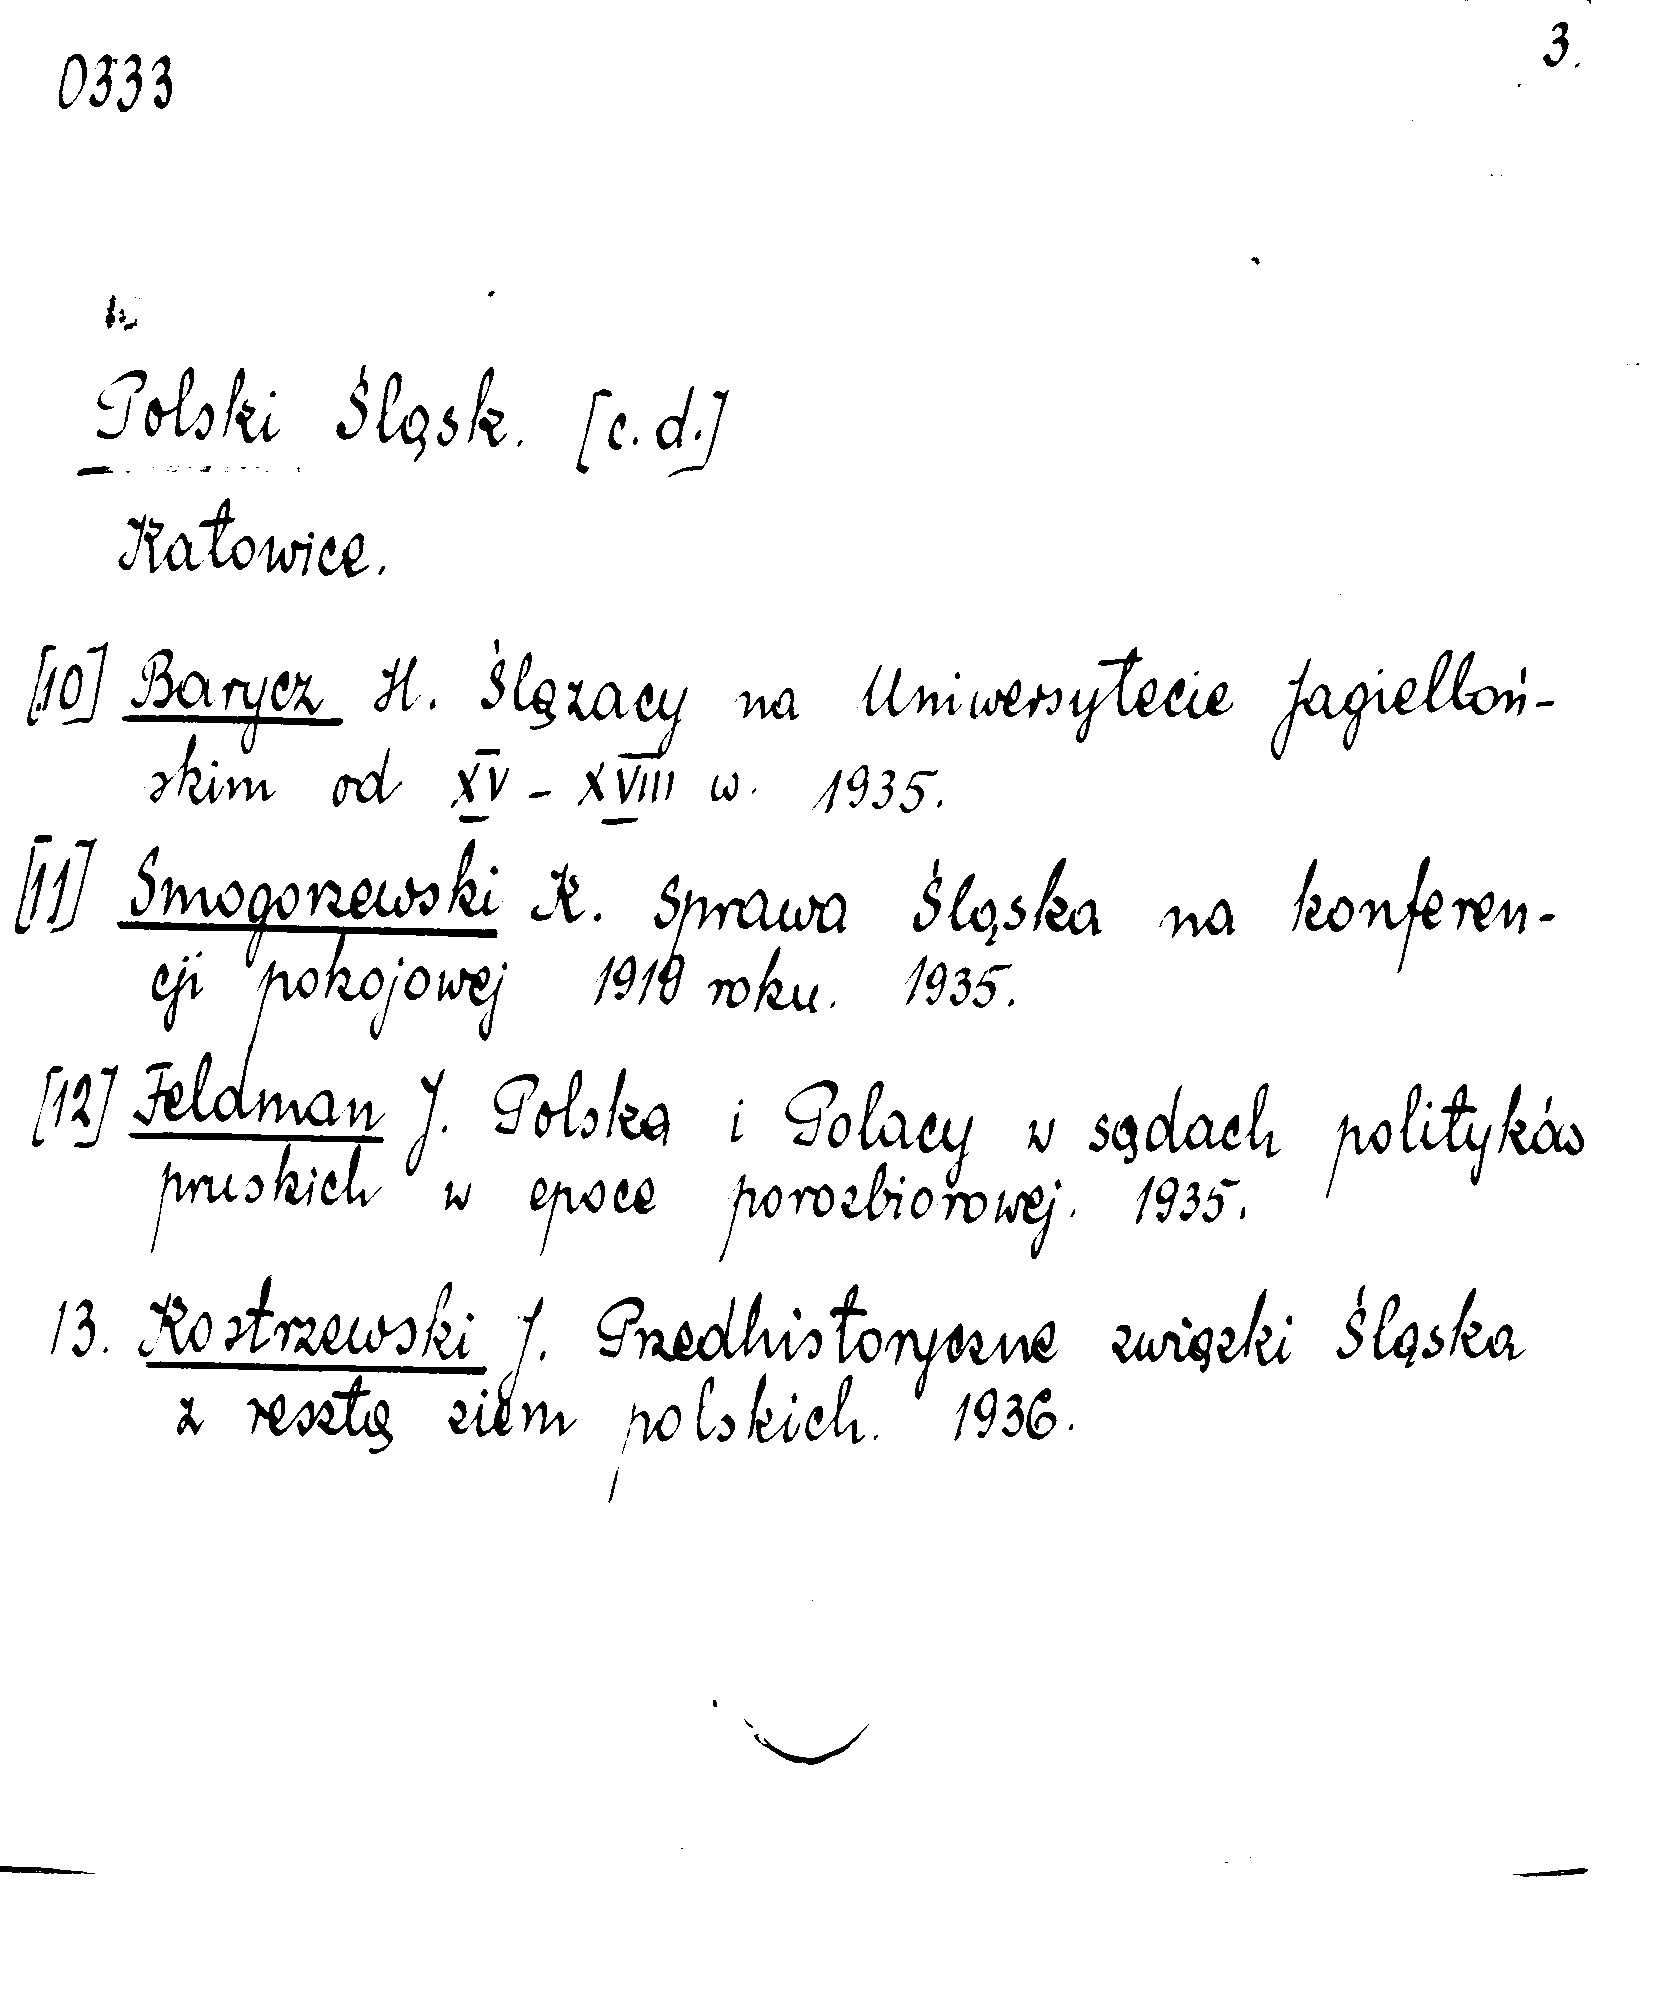 0333
3.
Polski Śląsk. [c.d.]
Katowice.
[10] Barycz H. Ślązacy na Uniwersytecie Jagielloń-
skim od XV - XVIII w. 1935.
[11] Smogorzewski K. Sprawa Śląska na konferen-
cji pokojowej 1918 roku. 1935.
[12] Feldman J. Polska i Polacy w sądach polityków
pruskich w epoce porozbiorowej. 1935.
13. Kostrzewski J. Przedhistoryczne związki Śląska
z resztą ziem polskich. 1936.